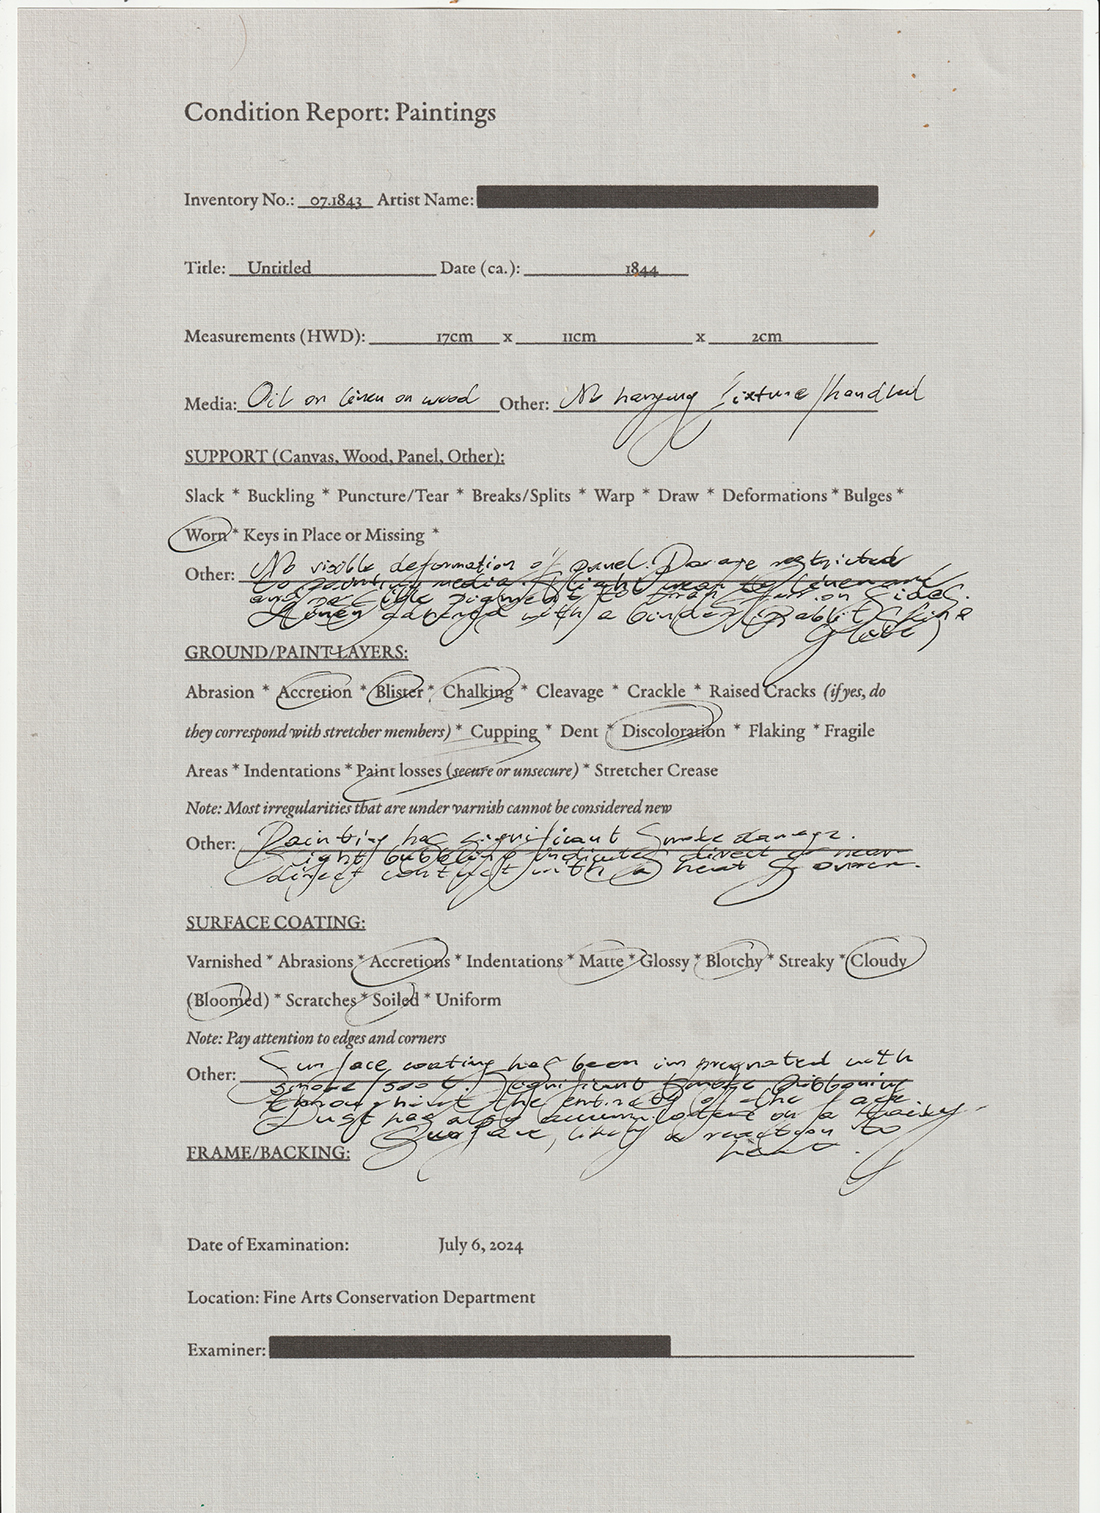 Condition Report: Paintings
Inventory No.: 07.1843 Artist Name:
Title: Untitled Date (ca.): 1844
Measurements (HWD): 17cm x 11cm x 2cm
Media: Oil on linen on wood Other: No hanging fixture/handled
SUPPORT (Canvas, Wood, Panel, Other):
Slack * Buckling * Puncture/Tear * Breaks/Splits * Warp * Draw * Deformations * Bulges *
Worn * Keys in Place or Missing *
Other: No visible deformation of panel. restricted
to media. Slight wear to linen and
on sides.
Linen adhered with a binder (rabbit skin
glue)
GROUND/PAINT LAYERS:
Abrasion * Accretion * Blister * Chalking * Cleavage * Crackle * Raised Cracks (if yes, do
they correspond with stretcher members) * Cupping * Dent * Discoloration * Flaking * Fragile
Areas * Indentations * Paint losses (secure or unsecure) * Stretcher Crease
Note: Most irregularities that are under varnish cannot be considered new
Other: Painting has significant smoke damage.
Light bubbling indicates direct or near-
direct contact with a heat source.
SURFACE COATING:
Varnished * Abrasions * Accretions * Indentations * Matte * Glossy * Blotchy * Streaky * Cloudy
(Bloomed) * Scratches * Soiled * Uniform
Note: Pay attention to edges and corners
Other: Surface coating has been impregnated with
smoke/soot. Significant smoke
throughout the entirety of the face.
Dust has also on a
surface, likely a reaction to
heat.
FRAME/BACKING:
Date of Examination: July 6, 2024
Location: Fine Arts Conservation Department
Examiner: